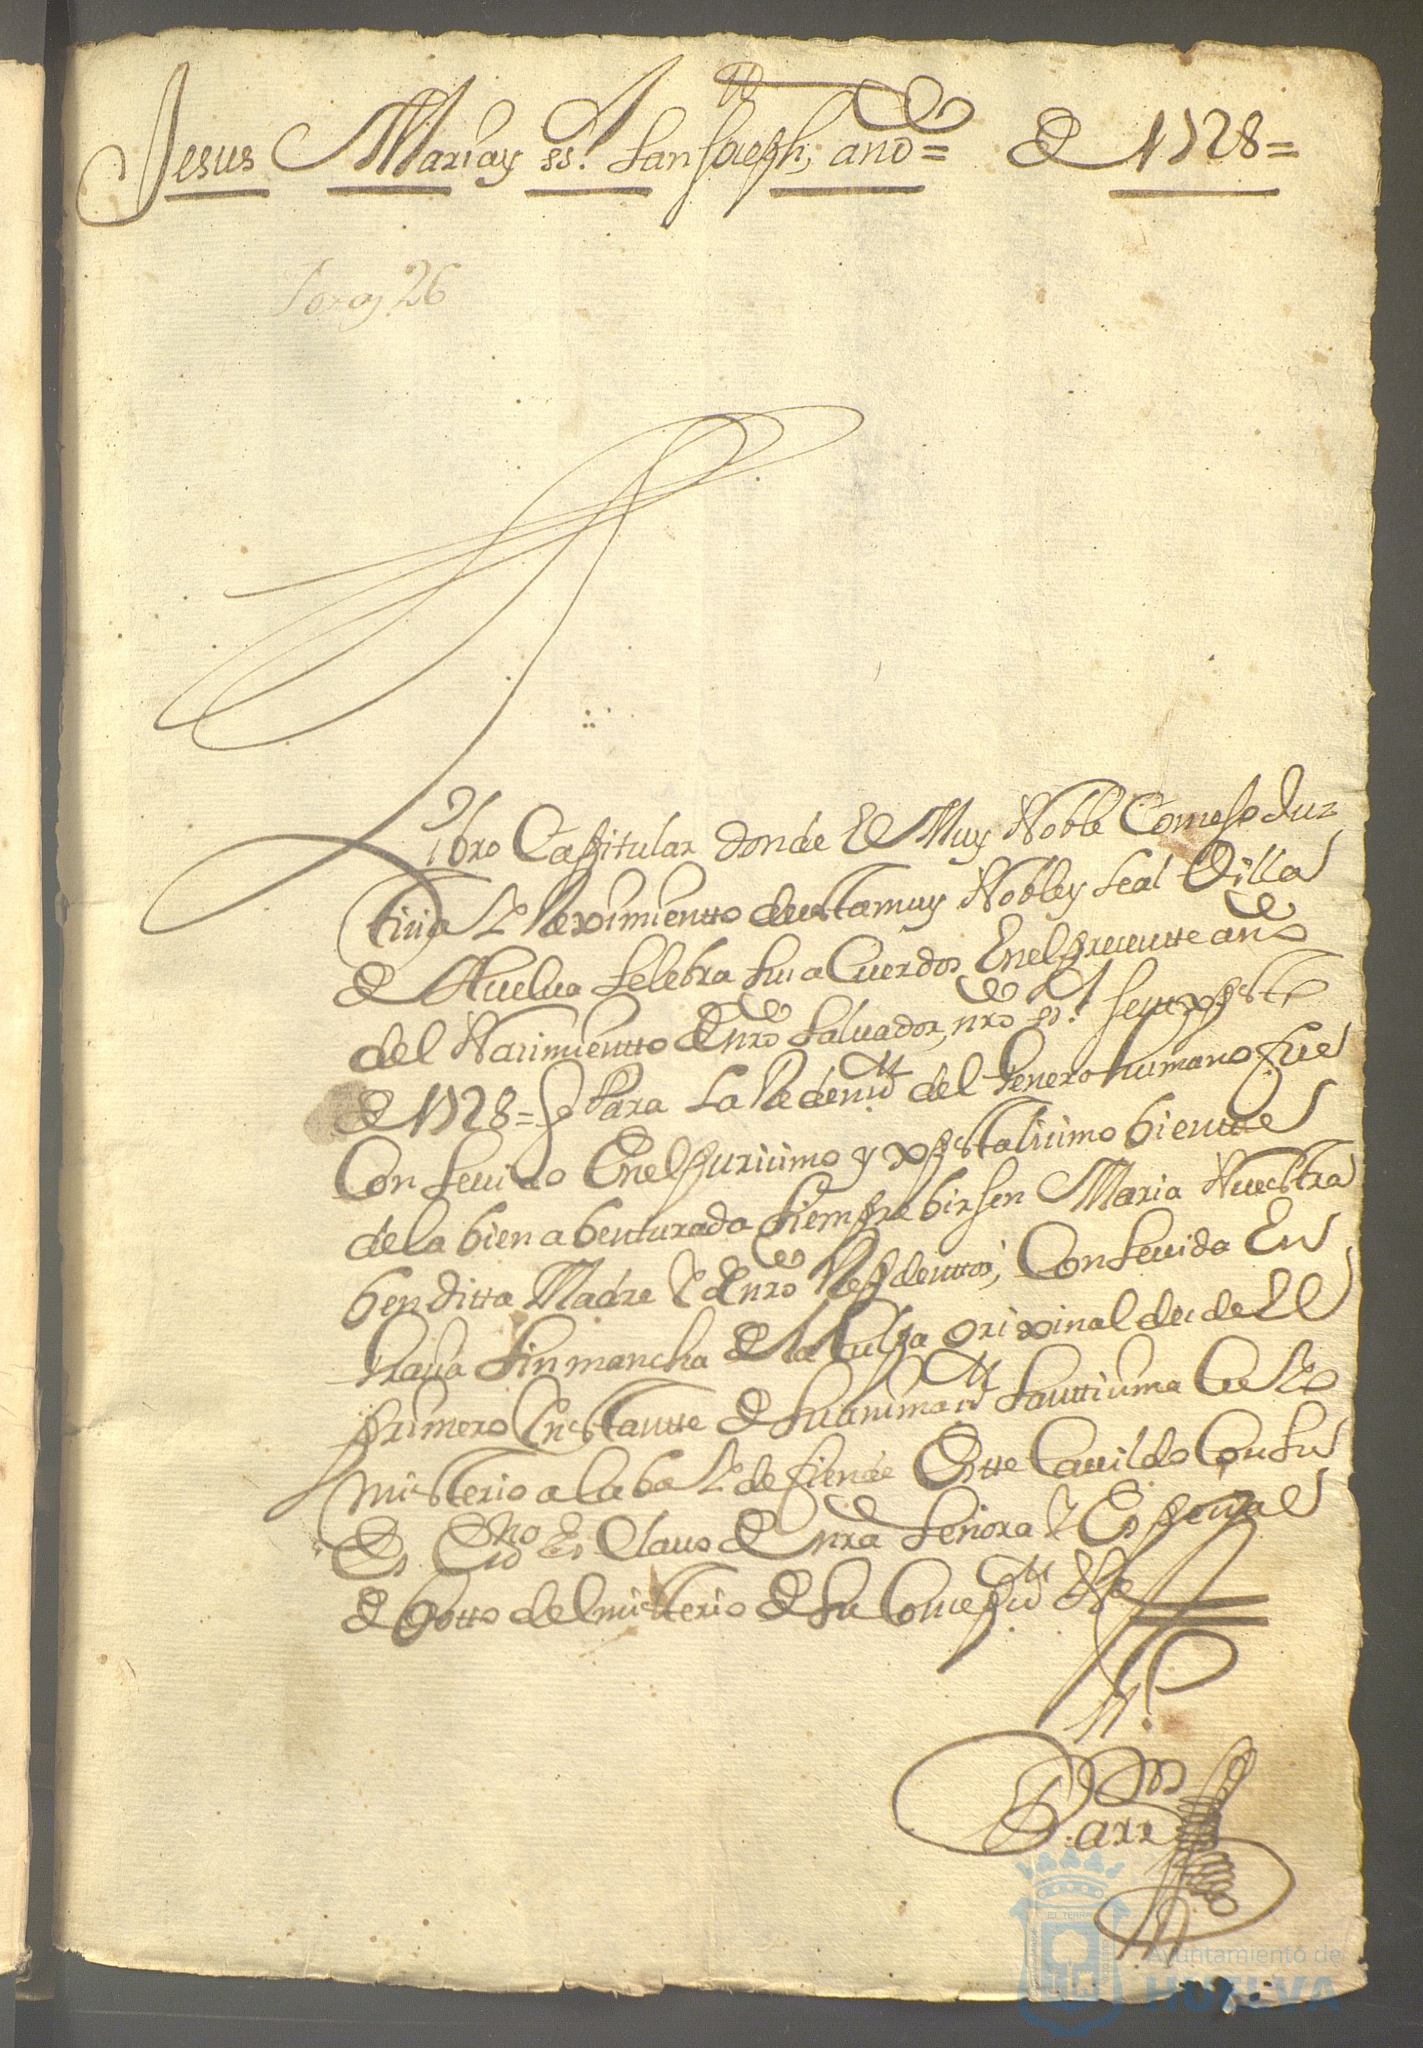 Jesus Maria y ss.r San Joseph, año = de 1728 =
26
Libro Capitular donde el Muy Noble Consejo Jus
tiсia y Reximientto de esta muy Noble y Leal Villa
de Huelva selebra sus aCuerdos en el presentte año
del Nasimientto de nro Salvador, nro ss.r Jesuxpsto
de 1728 = Para la Redenıᵒⁿ del Genero humano fue
Consevido en el purisimo y xpstalisimo bientre
de la bien abenturada Siempre birjen Maria Nuestra
benditta Madre y de nro Redenttor, Consevida en
Grasia sin mancha de la Culpa orixinal desde el
primero instantte de su animaᵒⁿ Santtisima Cuio
misterio alaba y defiende Estte Cavildo Con su
Es.no Esclavo de nra Señora y Espesial
deVotto del misterio de su Consepᵒⁿ
Ayuntamiento de
HUELVA